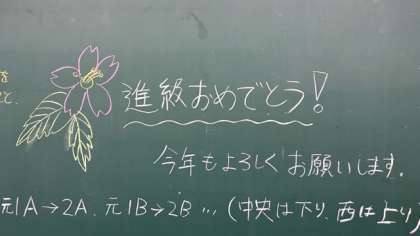 進級おめでとう!
今年もよろしくお願いします.
元1A→2A. 元1B→2B … (中央は下り、西は上り)